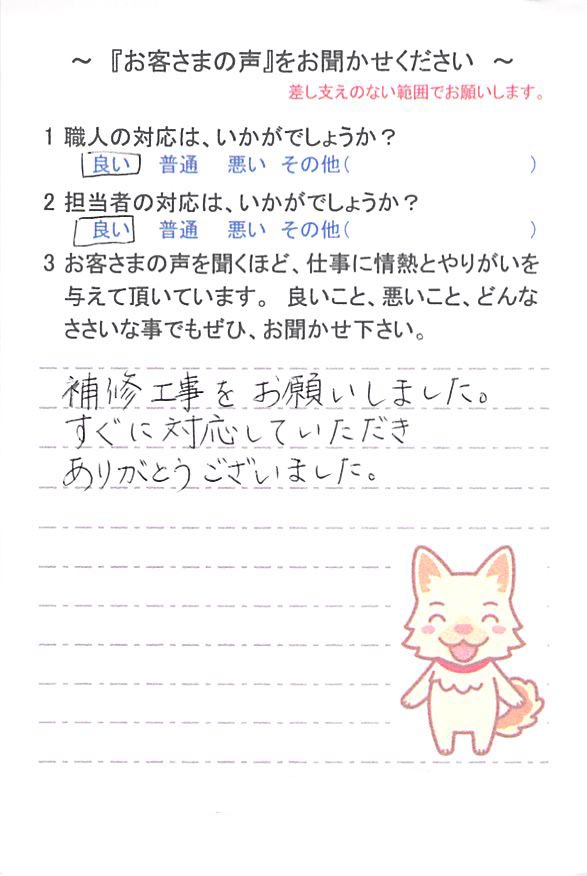 ～ 『お客さまの声』をお聞かせください ～
差し支えのない範囲でお願いします。
1 職人の対応は、いかがでしょうか？
良い 普通 悪い その他( )
2 担当者の対応は、いかがでしょうか？
良い 普通 悪い その他( )
3 お客さまの声を聞くほど、仕事に情熱とやりがいを
与えて頂いています。 良いこと、悪いこと、どんな
ささいな事でもぜひ、お聞かせ下さい。
補修工事をお願いしました。
すぐに対応していただき
ありがとうございました。